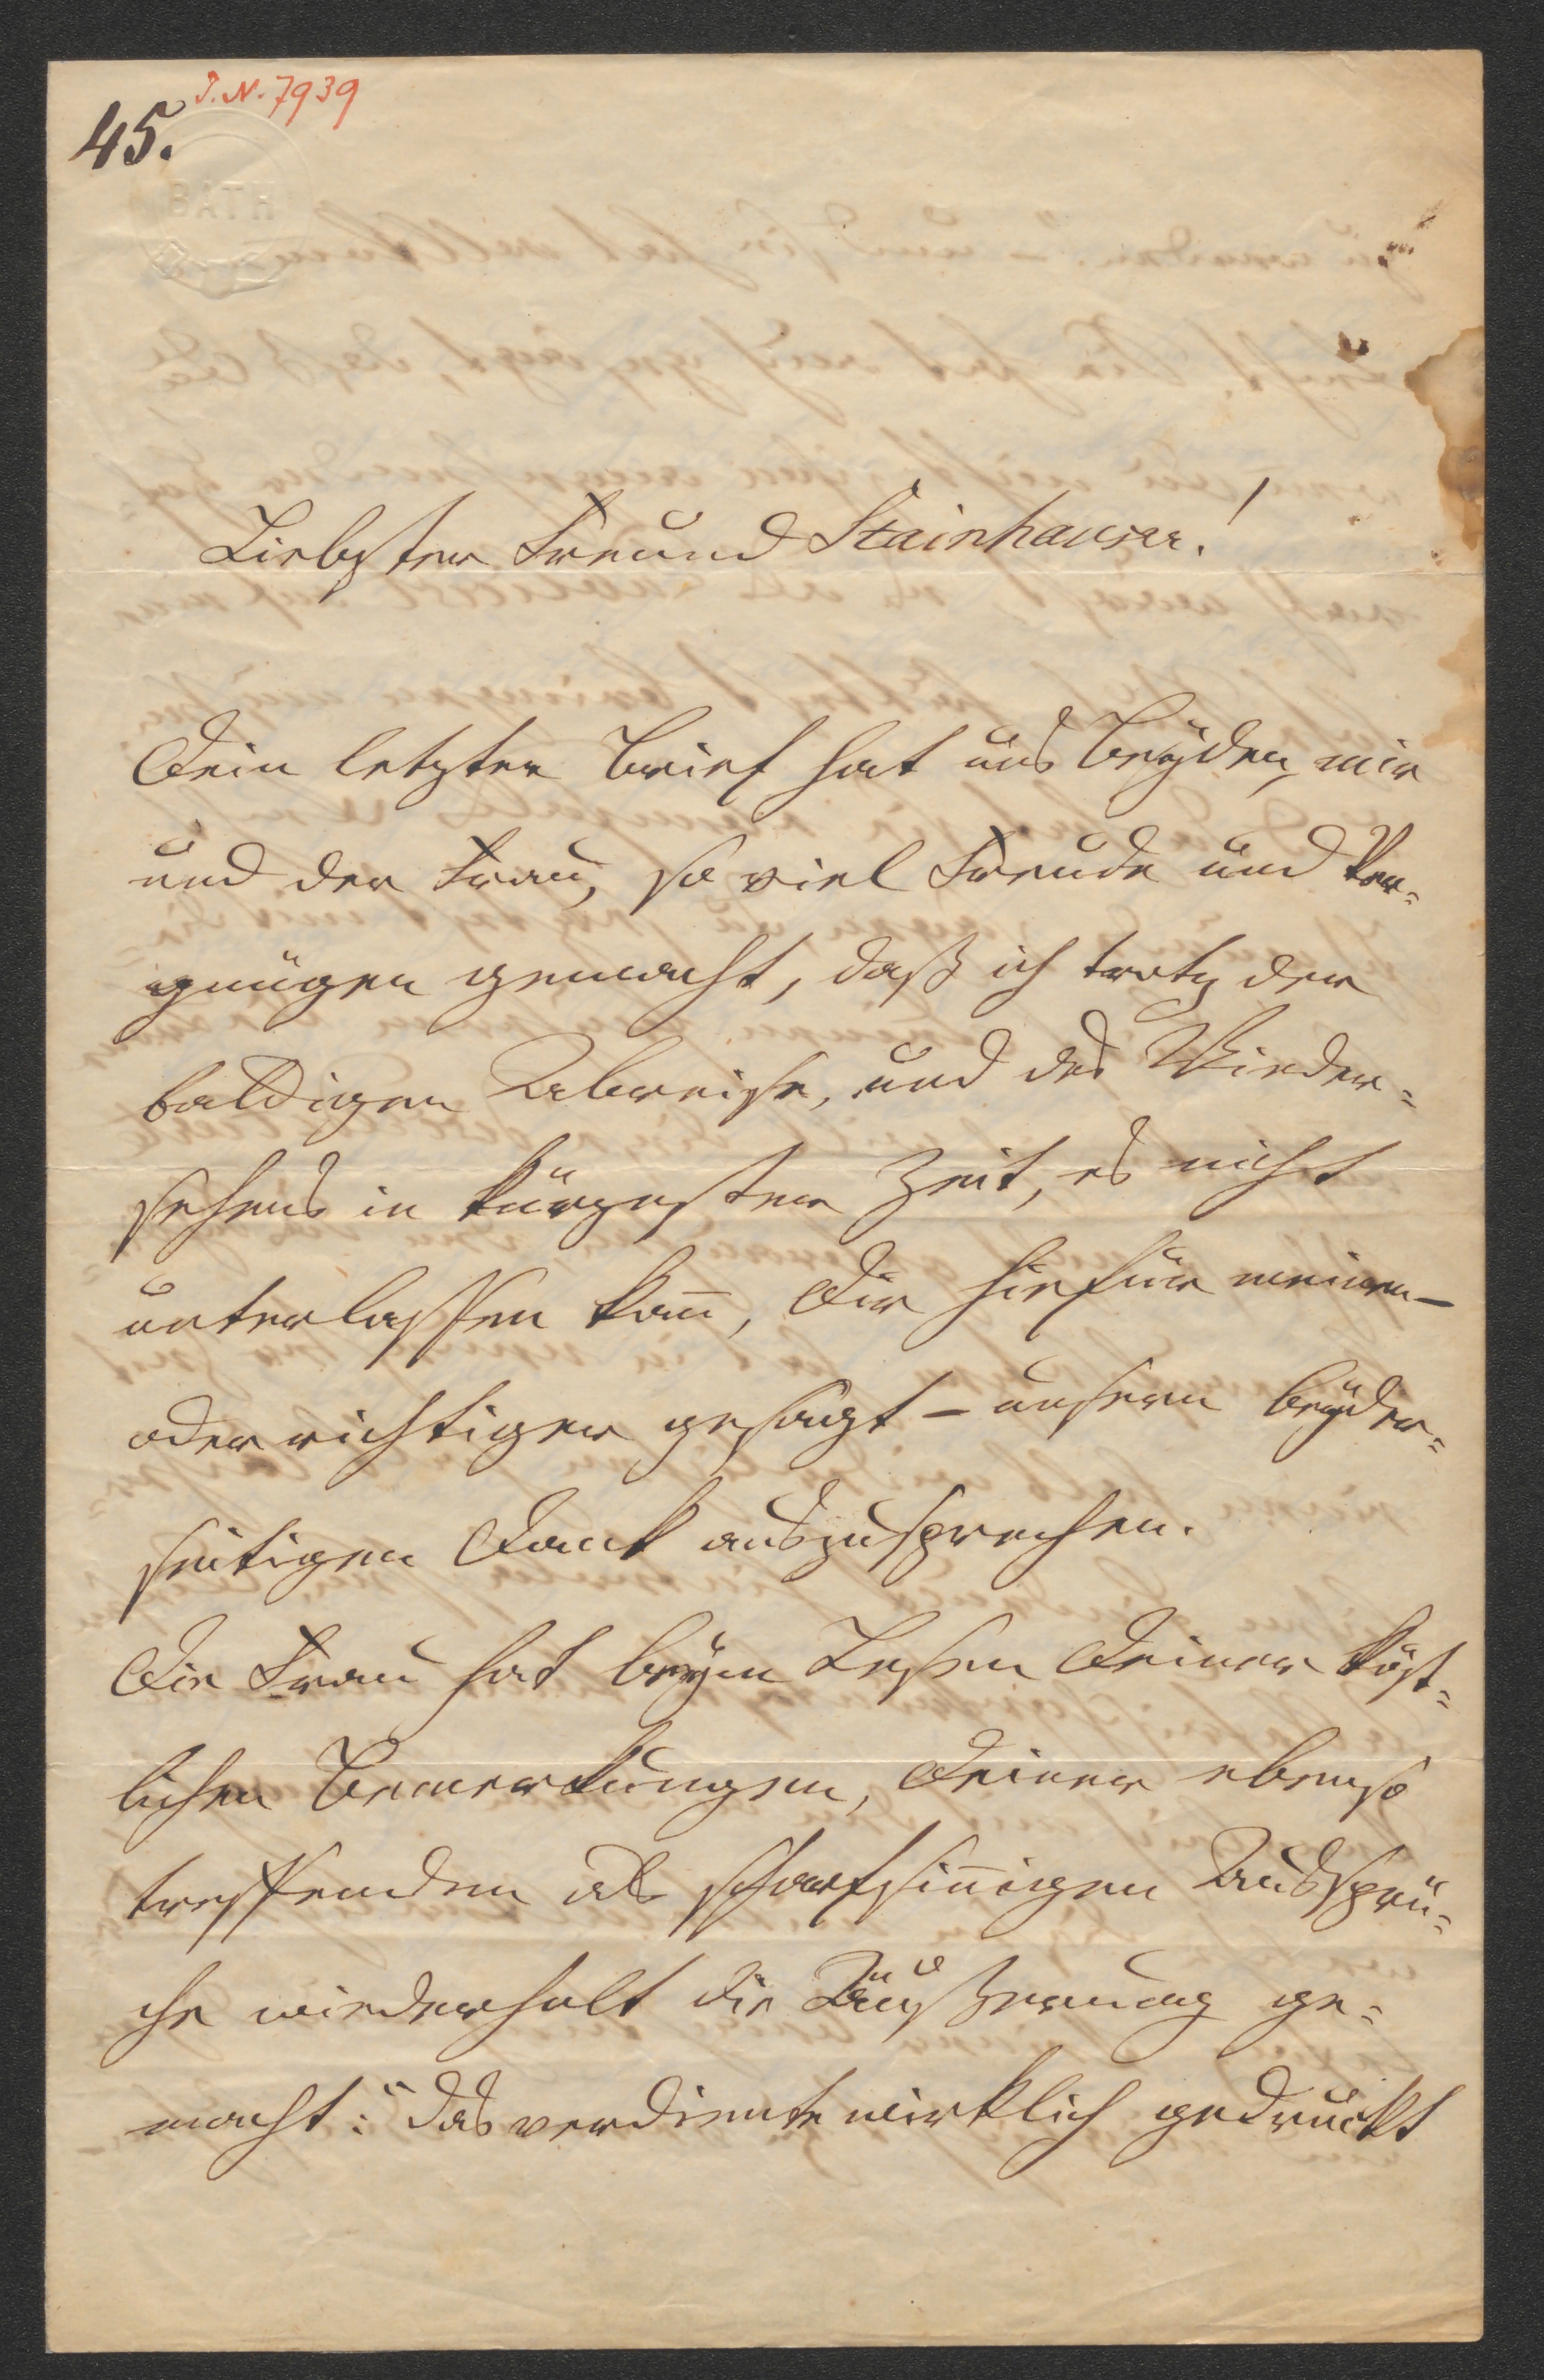 I.N. 7939
45.
BATH
Liebster Freund Stainhauser!
Dein letzter Brief hat uns Beÿden, mir
und der Frau, so viel Freude und Ver=
gnügen gemacht, daß ich trotz der
baldigen Abreise, und des Wieder=
sehens in kürzester Zeit, es nicht
unterlassen kan̄, Dir hiefür meinen –
oder richtiger gesagt – unsern beÿder=
seitigen Dank auszusprechen.
Die Frau hat beÿm Lesen Deiner köst=
lichen Bemerkungen, Deiner ebenso
treffenden als scharfsin̄igen Aussprü=
che wiederholt die Äußerung ge=
macht: "das verdiente wirklich gedruckt